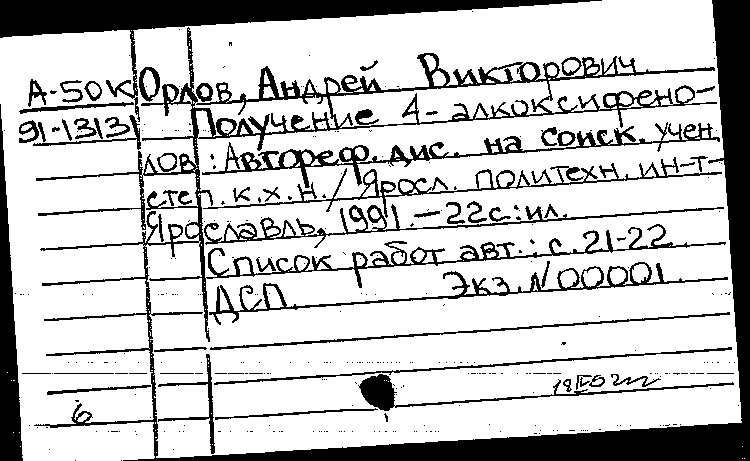 А-50К Орлов, Андрей Викторович
91-13131 Получение 4-алкоксифено-
лов: Автореф. дис. на соиск. учен.
степ. к.х.н. / Яросл. политехн. ин-т-
Ярославль, 1991.-22с.:ил.
Список работ авт.: с. 21-22
ДСП. Экз. №00001.
6